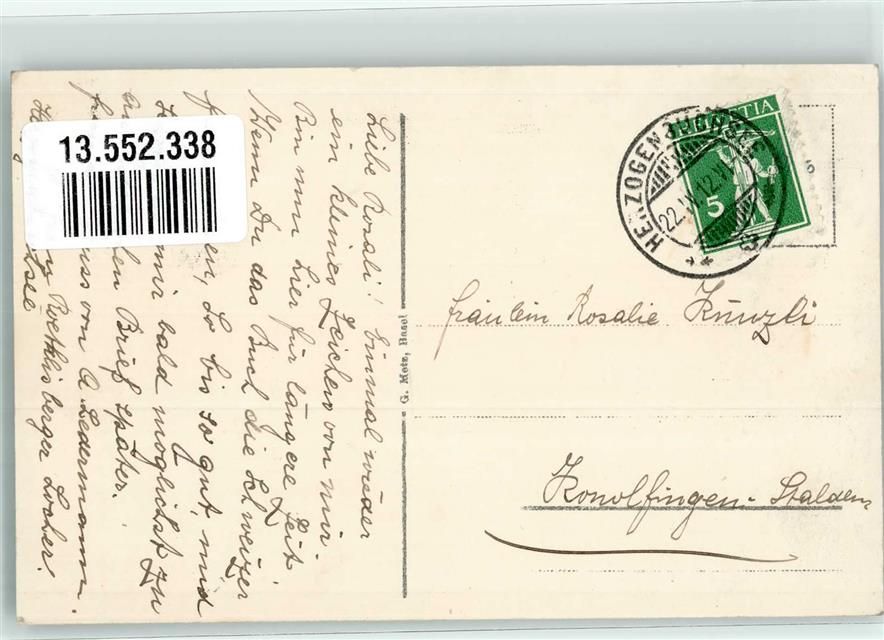 13.552.338
Liebe Rosali! Einmal wieder
ein kleines Zeichen von mir.
Bin nun hier für längere Zeit.
Wenn Du das Buch die Schweizer
so bis so gut, und
mir bald möglichst zu
Brief später.
von A Ledermann.
Roethlisberger Locher.
G. Metz, Basel
HERZOGENBUCHSEE
22. 12.
HELVETIA
5
Fräulein Rosalie Künzli
Konolfingen-Stalden